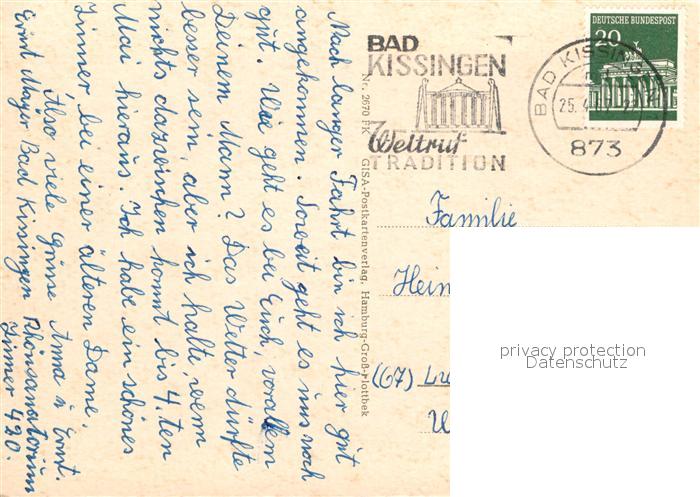 Nach langer Fahrt bin ich hier gut
angekommen. Soweit geht es uns noch
gut. Wie geht es bei Euch, vorallem
Deinem Mann? Das Wetter dürfte
besser sein, aber ich halte, wenn
nichts dazwischen kommt bis 4. ten
Mai hieraus. Ich habe ein schönes
Zimmer bei einer älteren Dame.
Also viele Grüsse Anna u Ernst.
Ernst Mayer Bad Kissingen Rhönsanatorium
Zimmer 420.
Nr. 2670 FK GISA-Postkartenverlag, Hamburg-Groß-Flottbek
BAD
KISSINGEN
Weltruf
TRADITION
DEUTSCHE BUNDESPOST
20
BAD KISSIN
25.4.
873
Familie
Hein
(67) Lu
privacy protection
Datenschutz